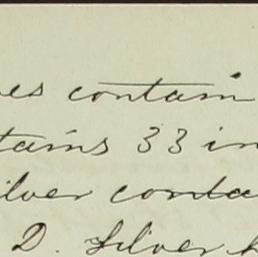 es contain
tains 33 in
ilver conta
D. Silver